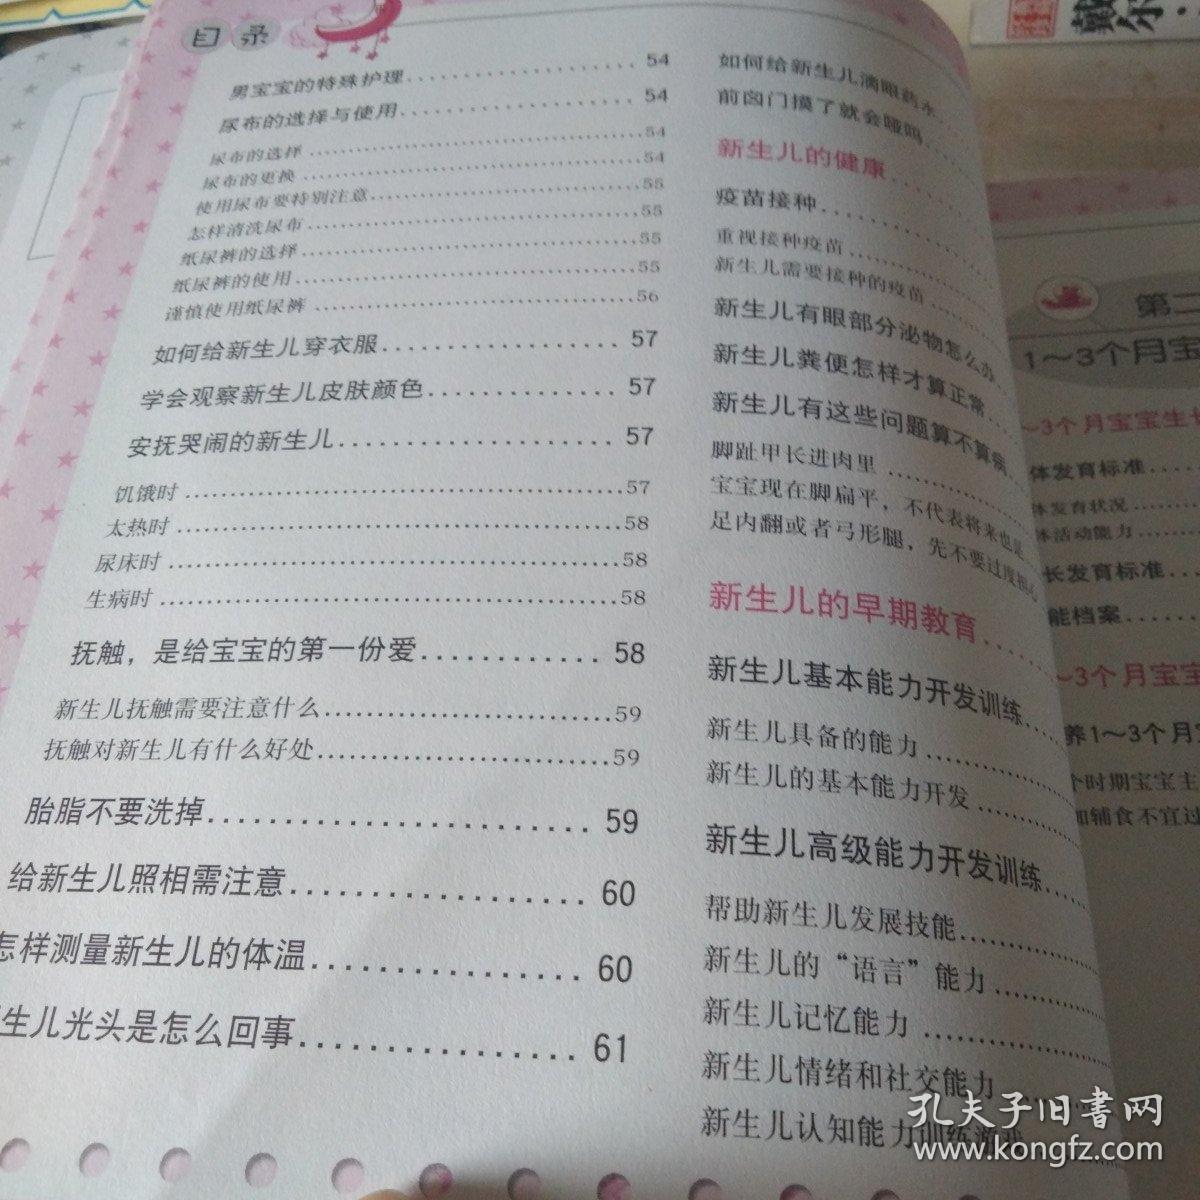 目录
男宝宝的特殊护理 54
尿布的选择与使用 54
尿布的选择 54
尿布的更换 54
使用尿布要特别注意 55
怎样清洗尿布 55
纸尿裤的选择 55
纸尿裤的使用 55
谨慎使用纸尿裤 56
如何给新生儿穿衣服 57
学会观察新生儿皮肤颜色 57
安抚哭闹的新生儿 57
饥饿时 57
太热时 58
尿床时 58
生病时 58
抚触，是给宝宝的第一份爱 58
新生儿抚触需要注意什么 59
抚触对新生儿有什么好处 59
胎脂不要洗掉 59
给新生儿照相需注意 60
怎样测量新生儿的体温 60
生儿光头是怎么回事 61
如何给新生儿滴眼药水
前囟门摸了就会哑吗
新生儿的健康
疫苗接种
重视接种疫苗
新生儿需要接种的疫苗
新生儿有眼部分泌物怎么办
新生儿粪便怎样才算正常
新生儿有这些问题算不算病
脚趾甲长进肉里
宝宝现在脚扁平，不代表将来也是
足内翻或者弓形腿，先不要过度担心
新生儿的早期教育
新生儿基本能力开发训练
新生儿具备的能力
新生儿的基本能力开发
新生儿高级能力开发训练
帮助新生儿发展技能
新生儿的“语言”能力
新生儿记忆能力
新生儿情绪和社交能力
新生儿认知能力训练游戏
戴
尔
第二
1～3个月宝
～3个月宝宝生长
体发育标准
体发育状况
体活动能力
长发育标准
能档案
～3个月宝宝
养1～3个月宝
个时期宝宝主
加辅食不宜过
孔夫子旧书网
www.kongfz.com